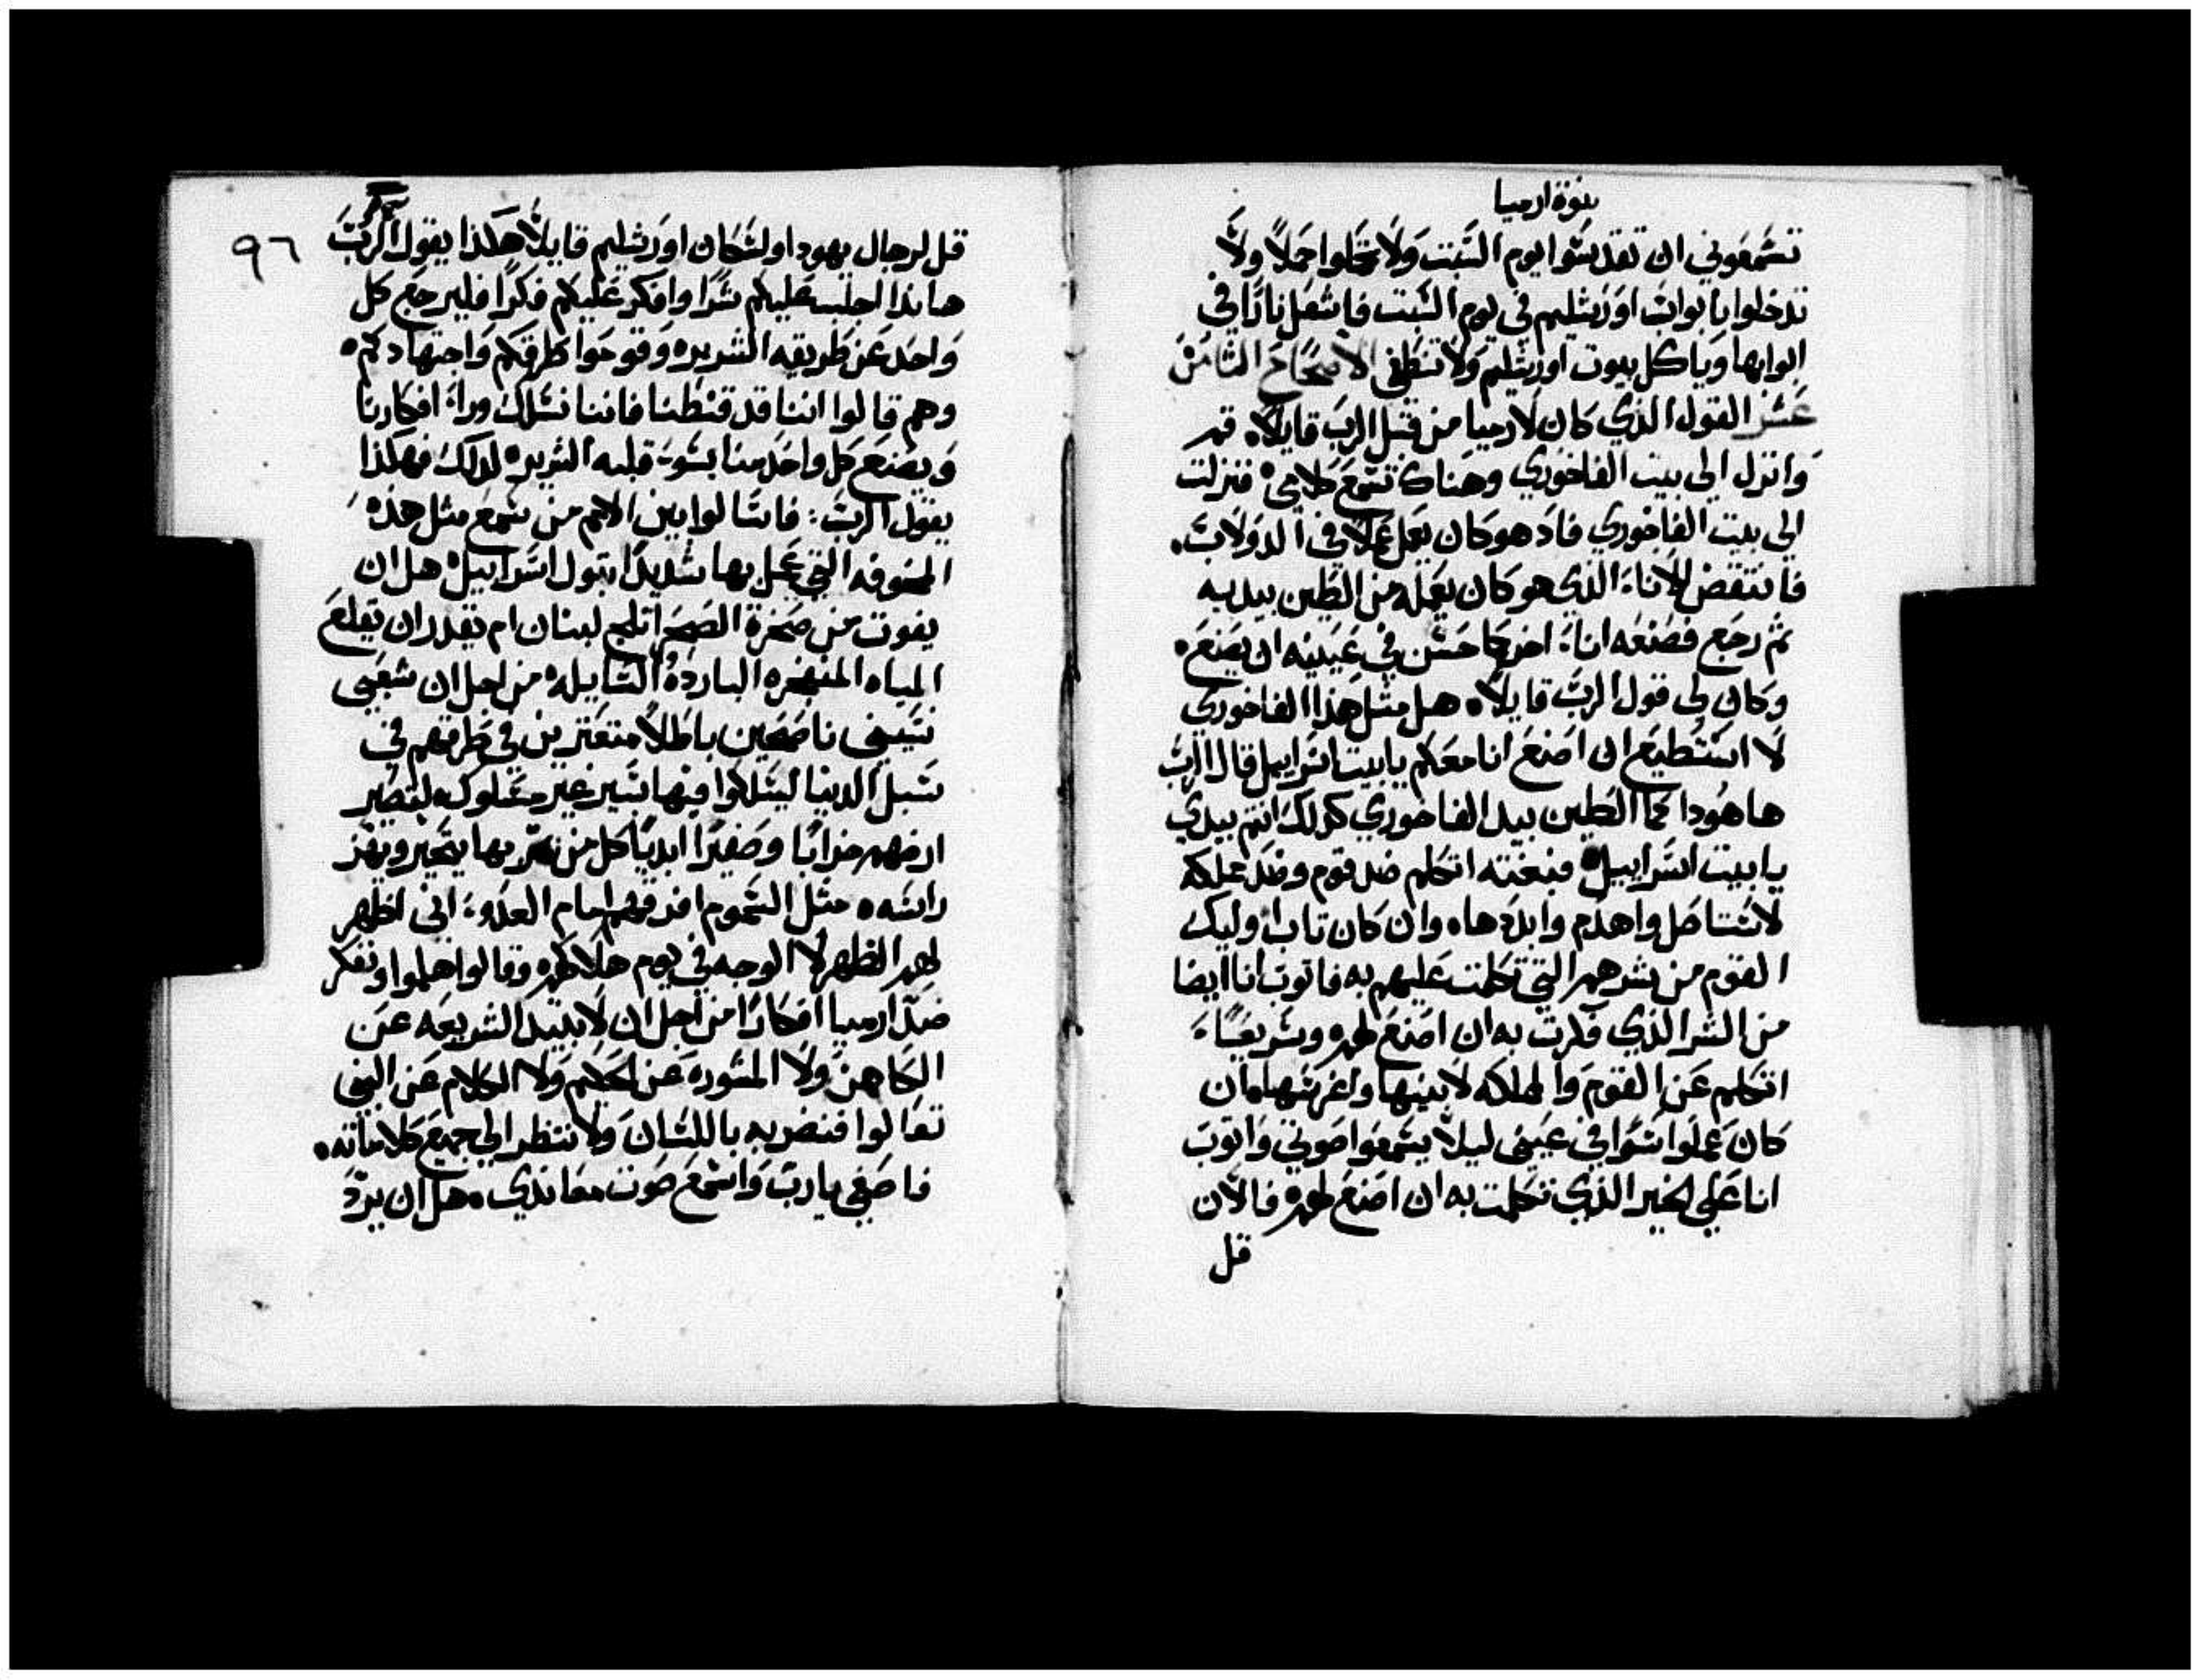 نبوة ارميا
تسمعوني ان تقدسوا يوم السبت ولا تحملوا حملاً ولا
تدخلوا بابواب اورشليم في يوم السبت فاشعل ناراً في
ابوابها وتاكل بيوت اورشليم ولا تنطفي الاصحاح الثامن
عشر القول الذي كان لارميا من قبل الرب قايلاً. قم
وانزل الي بيت الفاخوري وهناك تسمع كلامي. فنزلت
الي بيت الفاخوري فاذ هو كان يعمل عملاً في الدولاب.
فانتقض الاناء الذي هو كان يعمله من الطين بيديه
ثم رجع فصنعه اناء اخر كما حسن في عينيه ان يصنع.
وكان لي قول الرب قايلاً. هل مثل هذا الفاخوري
لا استطيع ان اصنع انا معكم يا بيت اسراييل قال الرب
ها هوذا كما الطين بيد الفاخوري كذلك انتم بيدي
يا بيت اسراييل. فبغته اتكلم ضد قوم وضد مملكه
لاستاصل واهدم وابددها. وان كان تاب اوليك
القوم من شرهم التي تكلمت عليهم به فاتوب انا ايضا
من الشر الذي فكرت به ان اصنع لهم. وسريعًا
اتكلم عن القوم والمملكه لابنيها واغرسها. فان
كان عملوا سوا في عيني ليلا يسمعوا صوتي واتوب
انا علي الخير الذي تكلمت به ان اصنع لهم. فالان
قل
٩٦
قل لرجال يهودا ولسكان اورشليم قايلاً هكذا يقول الرب
هانذا اجلب عليكم شرًا وافكر عليكم فكرًا فليرجع كل
واحد عن طريقه الشريره وقوموا طرقكم واجتهادكم.
وهم قالوا اننا قد قنطنا فاننا نسلك وراء افكارنا
ونصنع كل واحد منا بسوء قلبه الشرير. لذلك فهكذا
يقول الرب: فاسالوا بين الامم من سمع مثل هذه
المخوفه التي عمل بها شديدًا بتول اسراييل. هل ان
يفوت من صخرة الصحرا ثلج لبنان ام يقدر ان تقلع
المياه المنفجره البارده السايله. من اجل ان شعبي
نسيني ناضحين باطلاً متعثرين في طرقهم في
سبل الدنيا ليسلكوا فيها سير غير مسلوك. لتصير
ارضهم خرابًا وصفيرًا ابديًا كل من يمر بها يتحير ويهز
راسه. مثل السموم افرقهم امام العدو، اني اظهر
لهم الظهر لا الوجه في يوم هلاكهم. وقالوا هلموا ونفكر
ضد ارميا افكارًا من اجل ان لا تبيد الشريعه عن
الكاهن ولا المشوره عن الحكيم ولا الكلام عن النبي
تعالوا فنضربه باللسان ولا ننتظر الي جميع كلاماته.
فاصغي يا رب واسمع صوت معاندي. هل ان يردّ